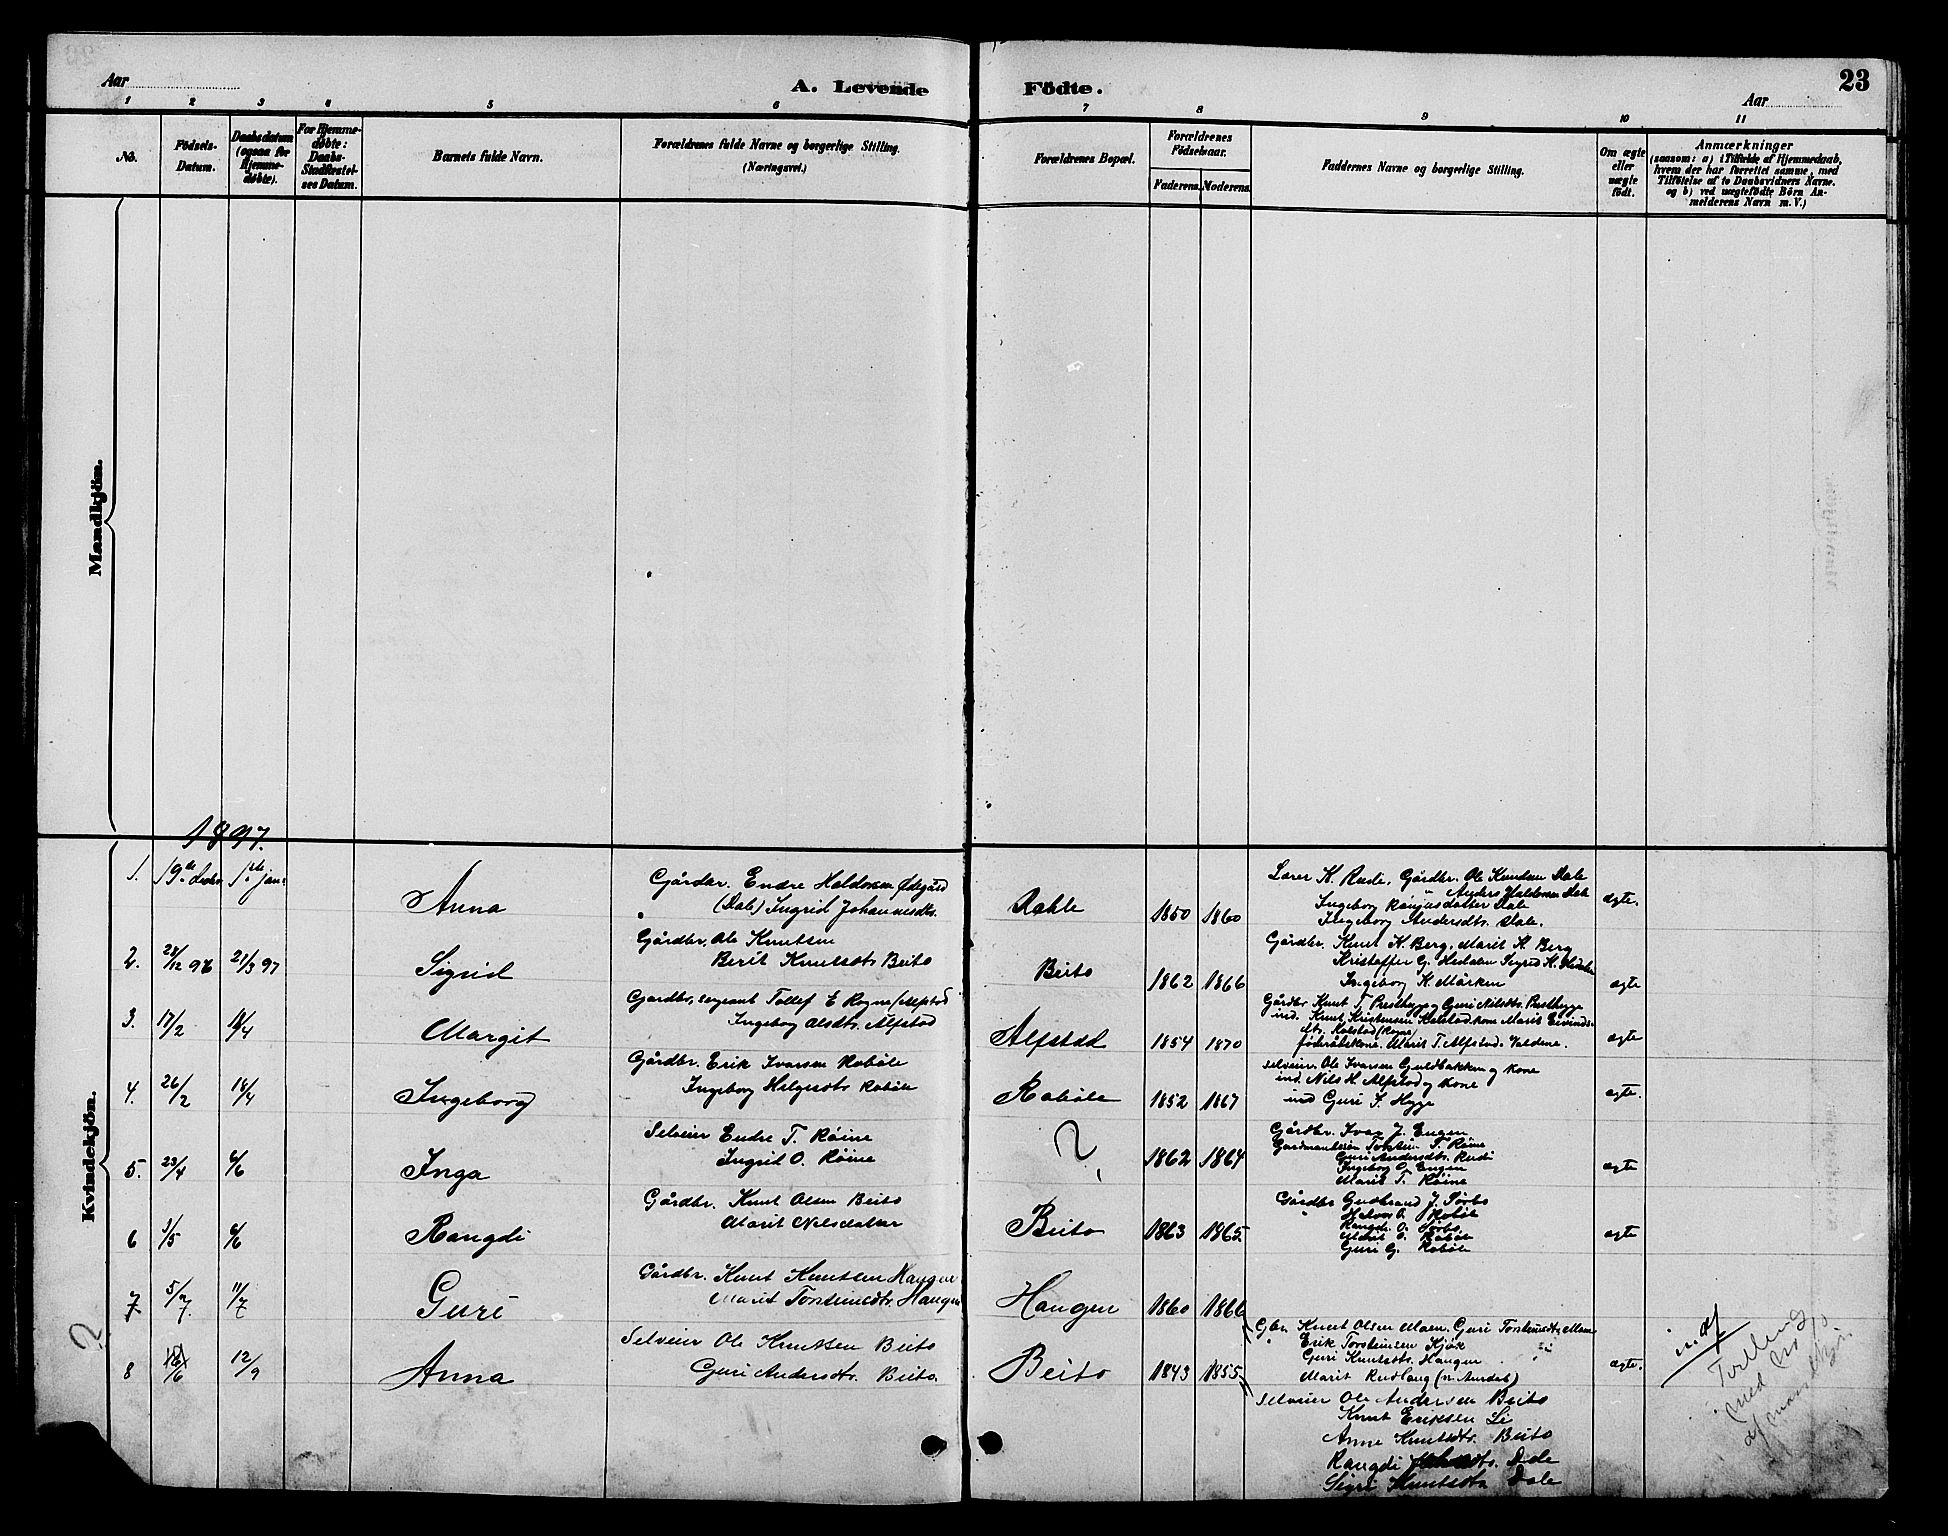 Aar
A. Levende
Födte.
23
Aar
1 2 3 4 5 6 7 8 9 10 11
No.
Födsels-
Datum.
Daabsdatum
(ogsaa for
Hjemme-
døbte).
For Hjemme-
døbte:
Daabs-
Stadfæstel-
ses Datum.
Barnets fulde Navn.
Forældrenes fulde Navne og borgerlige Stilling.
(Næringsvei.)
Forældrenes Bopæl.
Forældrenes
Födselsaar.
Faderens. Moderens.
Faddernes Navne og borgerlige Stilling.
Om ægte
eller
uægte
født.
Anmærkninger
(saasom: a) i Tilfælde af Hjemmedaab,
hvem der har forrettet samme, med
Tilföielse af to Daabsvidners Navne,
og b) ved uægtefödte Börn An-
melderens Navn m. V.)
Mandkjön.
1897.
Kvindekjön.
1. 19de Decbr 1ste jan.
Anna
Gårdbr. Endre Haldorsen Ødegård
(Dale) Ingrid Johannesdtr.
Dahle
1850 1860
Lærer K. Rudi, Gårdbr. Ole Knudsen Dale
" Anders Haldorsen Dale
Ingeborg Dale
Ingeborg Andersdtr. Dale.
ægte.
2. 28/12 96 21/3 97
Sigrid
Gårdbr. Ole Knutsen
Berit Knutsdtr Beito
Beito
1862 1866
Gårdbr. Knut K. Berg, Marit K. Berg
Kristoffer G. Hedalen Sigrid K. Hedalen
Ingeborg K. Mörken
ægte
3. 17/2 18/4
Margit
Gårdbr, sergeant Tollef E Rogne/Alfstad
Ingeborg Olsdtr. Alfstad
Alfstad
1854 1870
Gårdbr Knut T. Presthyge og Guri Nilsdtr. Presthyge
ind. Knut Kristensen Kolstad kone Marit Eivinds-
dtr. Kolstad (Rogne)
föderådskone. Marit T. Alfstad. Valdene.
ægte
4. 26/2 18/4
Ingeborg
Gårdbr. Erik Ivarsen Robøle
Ingeborg Helgesdtr. Robøle
Robøle
1852 1867
Selveier. Ole Ivarsen Guldbakken og kone
ind. Nils H. Alfstad og kone
ind Guri S. Hyge
ægte.
5. 23/4 6/6
Inga
Selveier Endre T. Röine
Ingrid O. Röine
?
1862 1864
Gårdbr. Ivar J. Engen
Torstein T. Röine
Guri Andersdtr. Rudi
Ingeborg O. Engen
Marit T. Röine
ægte
6 1/5 6/6
Rangdi
Gårdbr. Knut Olsen Beito
Marit Nilsdatter
Beito
1863 1865
Gårdbr Gudbrand J. Sørbo
" Halvor O. Robøle
Rangdi O. Sørbo
Marit O. Robøle
Guri G. Robøle
ægte
7 5/7 11/7
Guri
Gårdbr. Knut Knutsen Haugen
Marit Torsteinsdtr. Haugen
Haugen
1860 1866
Gbr. Knut Olsen Moen, Guri Torsteinsdtr. Moen
" Erik Torsteinsen Kjök
Guri Knutsdtr. Haugen
Marit Rudlang
ægte.
?
8 12/9
Anna
Selveier Ole Knutsen Beito
Guri Andersdtr. Beito.
Beito
1843 1855
Selveier Ole Andersen Beito
Knut Eriksen Li
Anne Knutsdtr. Beito
Rangdi Dale
Sigri Knutsdtr Dale
Tvilling
med No
af mandkjøn.